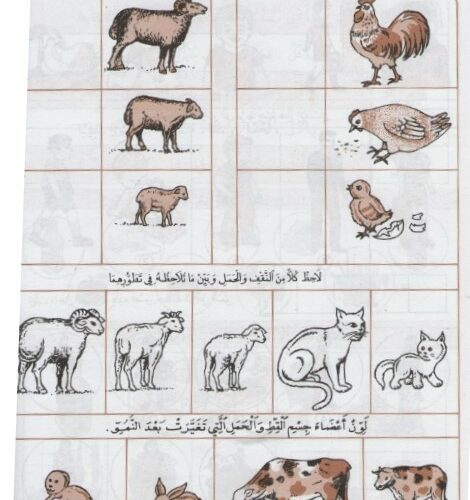 لَاحِظْ كُلًّا مِنَ النَّقْفِ وَالْحَمَلِ وَبَيِّنْ مَا تُلَاحِظُهُ فِي تَطَوُّرِهِمَا
لَوِّنْ أَعْضَاءَ جِسْمِ الْقِطِّ وَالْحَمَلِ الَّتِي تَغَيَّرَتْ بَعْدَ النُّمُوِّ.